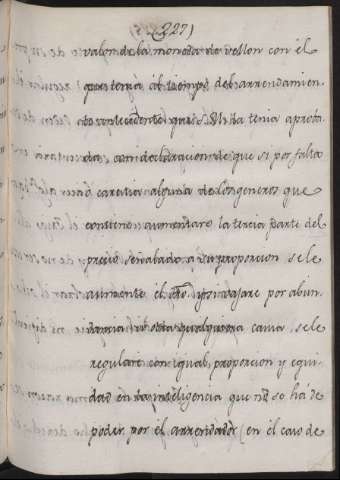 227)
valor de la moneda de vellon con él
que tenia al tiempo del arrendamien-
to antecedente que S. M. la tenia aprota-
da, con declaracion de que si por falta
caratia alguna de los generos que
contiene aumentare la tercia parte del
precio señalado a su proporcion se le
aumente él, y si vajare por abun-
dancia u otra qualquera causa, se le
regulare con igual proporcion y equi-
dad en la inteligencia que no se ha de
poder por él arrendador (en él caso de